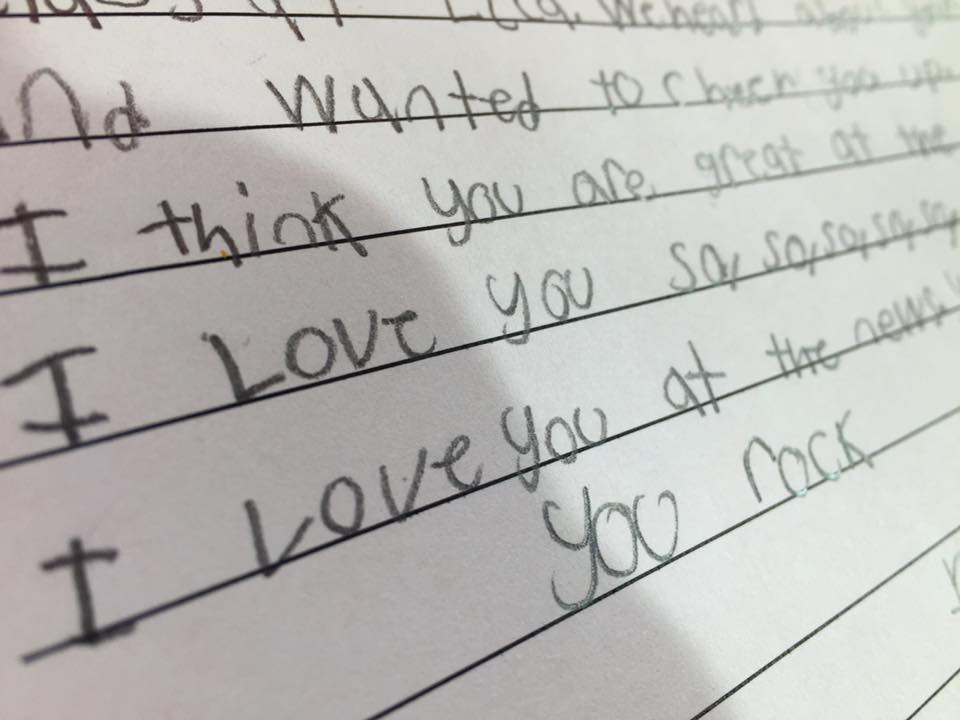 We heart about
And wanted to chuer you up
I think you are great at the
I Love you so, so, so, so, so,
I Love you at the news
you rock